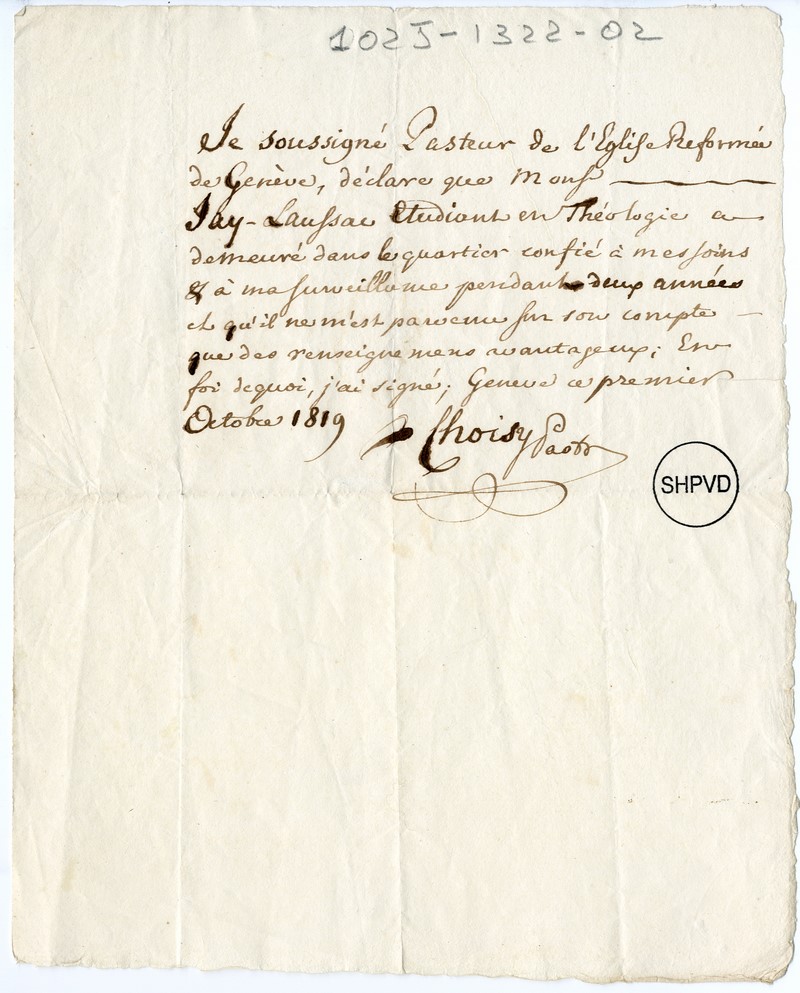 102J-1322-02
Je soussigné Pasteur de l'Eglise Reformée
de Genève, déclare que Monsr
Jay-Laussac Etudiant en Théologie a
demeuré dans le quartier confié à mes soins
& à ma surveillance pendant deux années
et qu'il ne m'est parvenu sur son compte
que des renseignemens avantageux; En
foi dequoi, j'ai signé; Geneve ce premier
Octobre 1819
Choisy Pastr
SHPVD